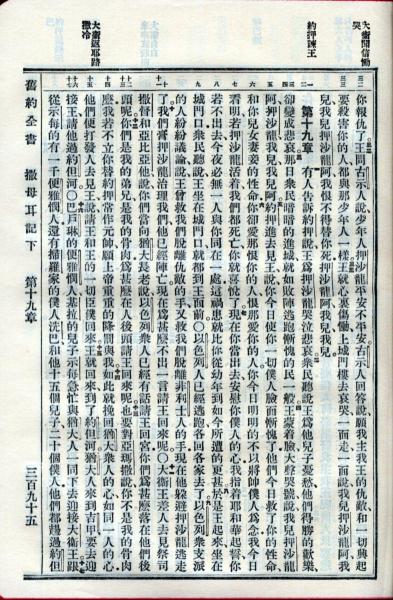 大衛聞信慟哭
約押諫王
大衛返耶路撒冷
你報仇了王問古示人說少年人押沙龍平安不平安古示人回答說願我主我王的仇敵和一切興起
要殺害你的人都與那少年人一樣王就心裏傷慟上城門樓去哀哭一面走一面說我兒押沙龍阿我
兒我兒押沙龍阿我恨不得替你死押沙龍阿我兒我兒
第十九章 有人告訴約押說王爲押沙龍哭泣悲哀衆民聽說王爲他兒子憂愁他們得勝的歡樂
卻變成悲哀那日衆民暗暗的進城就如敗陣逃跑慚愧的民一般王蒙着臉大聲哭號說我兒押沙龍
阿押沙龍我兒我兒約押進去見王說你今日使你一切僕人臉面慚愧了他們今日救了你的性命
和你兒女妻妾的性命你卻愛那恨你的人恨那愛你的人你今日明明的不以將帥僕人爲念我今日
看明若押沙龍活着我們都死亡你就喜悅了現在你當出去安慰你僕人的心我指着耶和華起誓你
若不出去今夜必無一人與你同在一處這禍患就比你從幼年到如今所遭的更甚於是王起來坐在
城門口衆民聽說王坐在城門口就都到王面前〇以色列人已經逃跑各回各家去了以色列衆支派
的人紛紛議論說王曾救我們脫離仇敵的手又救我們脫離非利士人的手現在他躲避押沙龍逃走
了我們膏押沙龍治理我們他已經陣亡現在爲甚麼不出一言請王回來呢〇大衛王差人去見祭司
撒督和亞比亞他說你們當向猶大長老說以色列衆人已經有話請王回宮你們爲甚麼落在他們後
頭呢你們是我的弟兄是我的骨肉爲甚麼在人後頭請王回來呢也要對亞瑪撒說你不是我的骨肉
麼我若不立你替約押常作元帥願上帝重重的降罰與我如此就挽回猶大衆人的心如同一人的心
他們便打發人去見王說請王和王的一切臣僕回來王就回來到了約但河猶大人來到吉甲要去迎
接王請他過約但河〇巴戶琳的便雅憫人基拉的兒子示每急忙與猶大人一同下去迎接大衛王跟
從示每的有一千便雅憫人還有掃羅家的僕人洗巴和他十五個兒子二十個僕人他們都趕過約但
舊約全書 撒母耳記下 第十九章 三百九十五